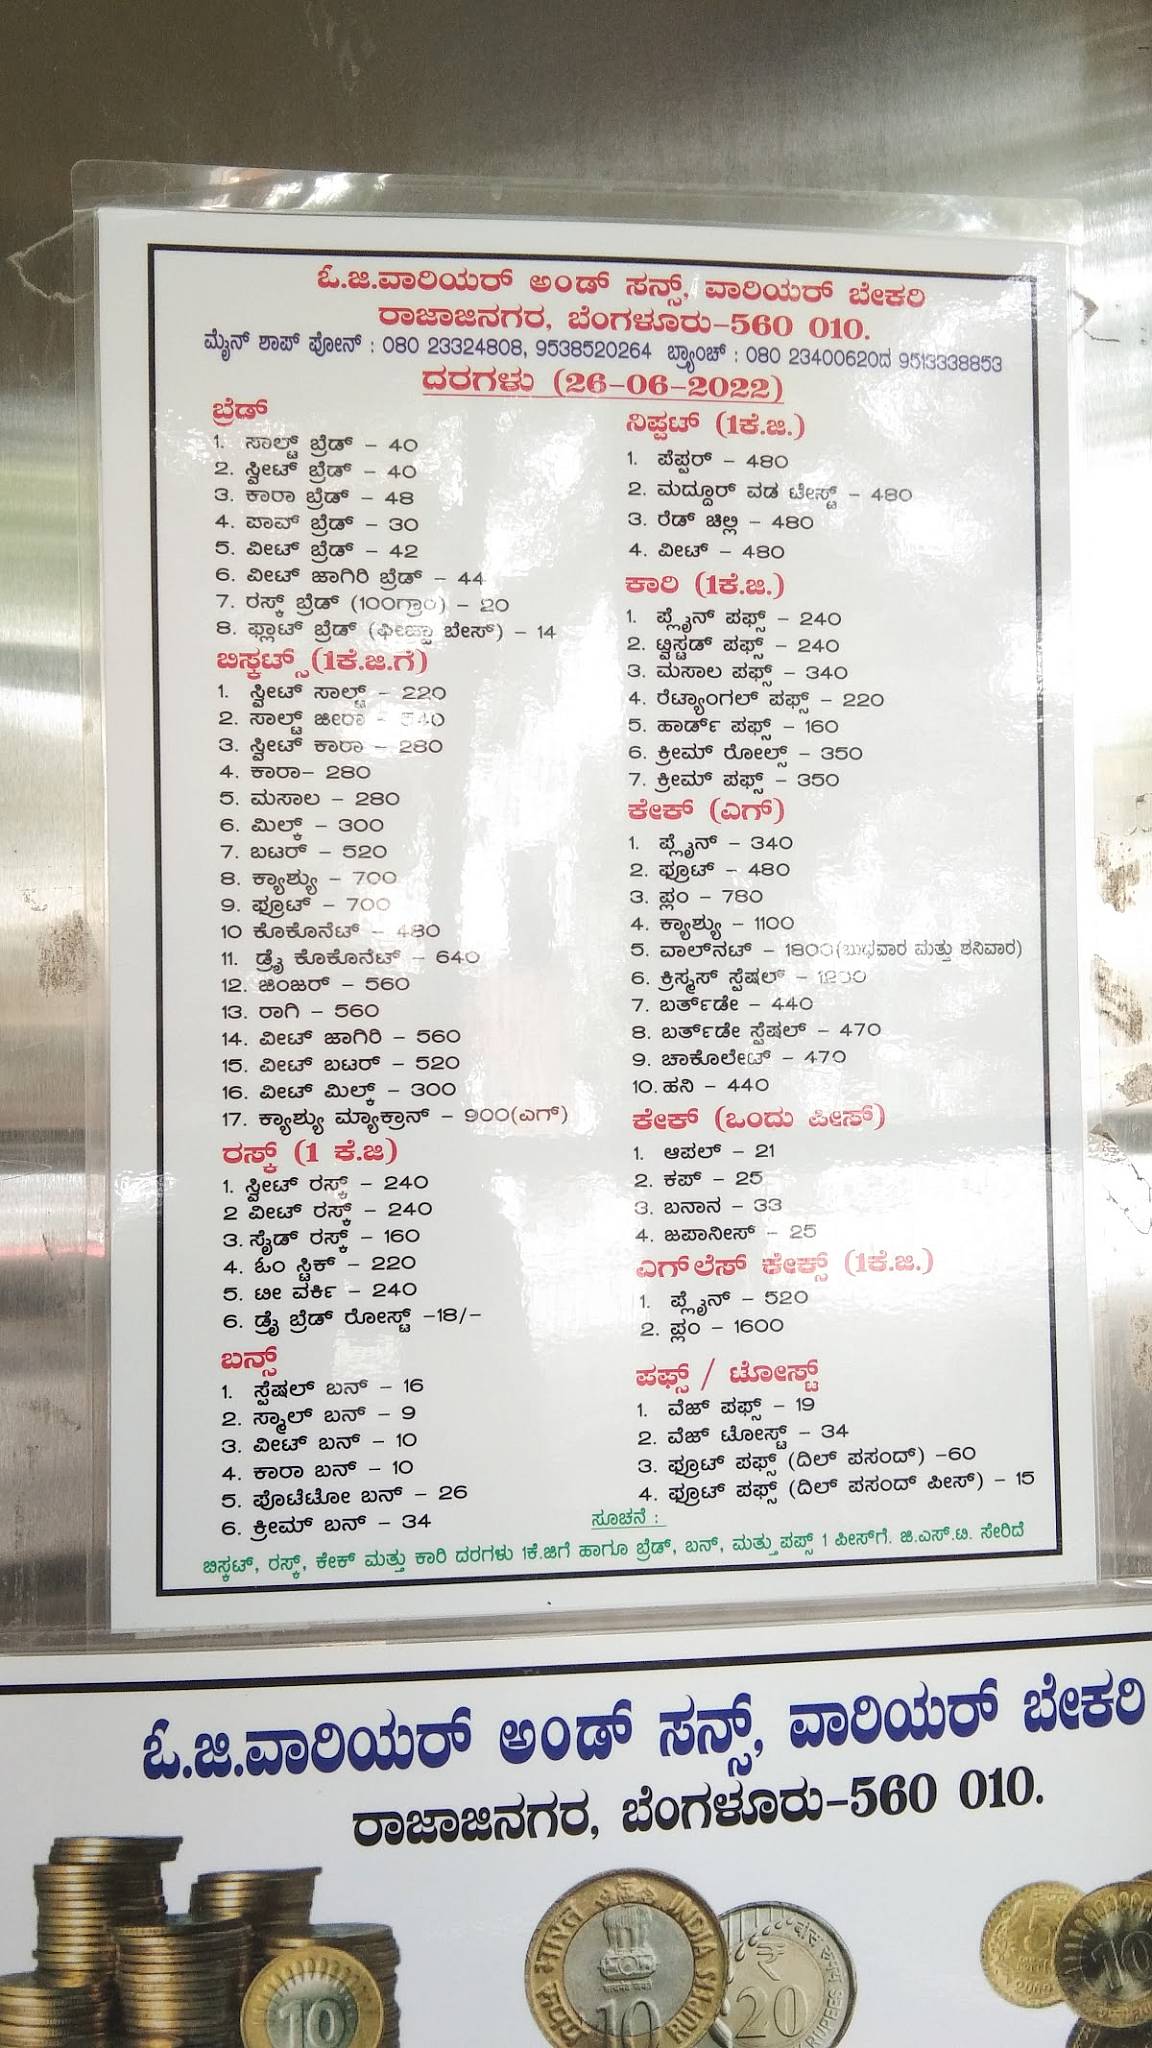 ಓ.ಜಿ.ವಾರಿಯರ್ ಅಂಡ್ ಸನ್ಸ್, ವಾರಿಯರ್ ಬೇಕರಿ
ರಾಜಾಜಿನಗರ, ಬೆಂಗಳೂರು-560 010.
ಮೈನ್ ಶಾಪ್ ಪೋನ್ : 080 23324808, 9538520264 ಬ್ರ್ಯಾಂಚ್ : 080 23400620ದ 9513338853
ದರಗಳು (26-06-2022)
ಬ್ರೆಡ್
1. ಸಾಲ್ಟ್ ಬ್ರೆಡ್ - 40
2. ಸ್ವೀಟ್ ಬ್ರೆಡ್ - 40
3. ಕಾರಾ ಬ್ರೆಡ್ - 48
4. ಪಾವ್ ಬ್ರೆಡ್ - 30
5. ವೀಟ್ ಬ್ರೆಡ್ - 42
6. ವೀಟ್ ಜಾಗಿರಿ ಬ್ರೆಡ್ - 44
7. ರಸ್ಕ್ ಬ್ರೆಡ್ (100ಗ್ರಾಂ) - 20
8. ಫ್ಲಾಟ್ ಬ್ರೆಡ್ (ಫೀಜ್ಜಾ ಬೇಸ್) - 14
ಬಿಸ್ಕಟ್ಸ್ (1ಕೆ.ಜಿ.ಗೆ)
1. ಸ್ವೀಟ್ ಸಾಲ್ಟ್ - 220
2. ಸಾಲ್ಟ್ ಜೀರಾ - 540
3. ಸ್ವೀಟ್ ಕಾರಾ - 280
4. ಕಾರಾ- 280
5. ಮಸಾಲ - 280
6. ಮಿಲ್ಕ್ - 300
7. ಬಟರ್ - 520
8. ಕ್ಯಾಶ್ಯು - 700
9. ಫ್ರೂಟ್ - 700
10 ಕೊಕೊನೆಟ್ - 480
11. ಡ್ರೈ ಕೊಕೊನೆಟ್ - 640
12. ಜಿಂಜರ್ - 560
13. ರಾಗಿ - 560
14. ವೀಟ್ ಜಾಗಿರಿ - 560
15. ವೀಟ್ ಬಟರ್ - 520
16. ವೀಟ್ ಮಿಲ್ಕ್ - 300
17. ಕ್ಯಾಶ್ಯು ಮ್ಯಾಕ್ರಾನ್ - 900(ಎಗ್)
ರಸ್ಕ್ (1 ಕೆ.ಜಿ)
1. ಸ್ವೀಟ್ ರಸ್ಕ್ - 240
2 ವೀಟ್ ರಸ್ಕ್ - 240
3. ಸೈಡ್ ರಸ್ಕ್ - 160
4. ಓಂ ಸ್ಟಿಕ್ - 220
5. ಟೀ ವರ್ಕಿ - 240
6. ಡ್ರೈ ಬ್ರೆಡ್ ರೋಸ್ಟ್ -18/-
ಬನ್ಸ್
1. ಸ್ಪೆಷಲ್ ಬನ್ - 16
2. ಸ್ಮಾಲ್ ಬನ್ - 9
3. ವೀಟ್ ಬನ್ - 10
4. ಕಾರಾ ಬನ್ - 10
5. ಪೊಟೆಟೋ ಬನ್ - 26
6. ಕ್ರೀಮ್ ಬನ್ - 34
ನಿಪ್ಪಟ್ (1ಕೆ.ಜಿ.)
1. ಪೆಪ್ಪರ್ - 480
2. ಮದ್ದೂರ್ ವಡ ಟೇಸ್ಟ್ - 480
3. ರೆಡ್ ಚಿಲ್ಲಿ - 480
4. ವೀಟ್ - 480
ಕಾರಿ (1ಕೆ.ಜಿ.)
1. ಪ್ಲೈನ್ ಪಫ್ಸ್ - 240
2. ಟ್ವಿಸ್ಟಡ್ ಪಫ್ಸ್ - 240
3. ಮಸಾಲ ಪಫ್ಸ್ - 340
4. ರೆಟ್ಯಾಂಗಲ್ ಪಫ್ಸ್ - 220
5. ಹಾರ್ಡ್ ಪಫ್ಸ್ - 160
6. ಕ್ರೀಮ್ ರೋಲ್ಸ್ - 350
7. ಕ್ರೀಮ್ ಪಫ್ಸ್ - 350
ಕೇಕ್ (ಎಗ್)
1. ಪ್ಲೈನ್ - 340
2. ಫ್ರೂಟ್ - 480
3. ಪ್ಲಂ - 780
4. ಕ್ಯಾಶ್ಯು - 1100
5. ವಾಲ್‌ನಟ್ - 1800(ಬುಧವಾರ ಮತ್ತು ಶನಿವಾರ)
6. ಕ್ರಿಸ್ಮಸ್ ಸ್ಪೆಷಲ್ - 1200
7. ಬರ್ತ್‌ಡೇ - 440
8. ಬರ್ತ್‌ಡೇ ಸ್ಪೆಷಲ್ - 470
9. ಚಾಕೊಲೇಟ್ - 470
10. ಹನಿ - 440
ಕೇಕ್ (ಒಂದು ಪೀಸ್)
1. ಆಪಲ್ - 21
2. ಕಪ್ - 25
3. ಬನಾನ - 33
4. ಜಪಾನೀಸ್ - 25
ಎಗ್‌ಲೆಸ್ ಕೇಕ್ಸ್ (1ಕೆ.ಜಿ.)
1. ಪ್ಲೈನ್ - 520
2. ಪ್ಲಂ - 1600
ಪಫ್ಸ್ / ಟೋಸ್ಟ್
1. ವೆಜ್ ಪಫ್ಸ್ - 19
2. ವೆಜ್ ಟೋಸ್ಟ್ - 34
3. ಫ್ರೂಟ್ ಪಫ್ಸ್ (ದಿಲ್ ಪಸಂದ್) -60
4. ಫ್ರೂಟ್ ಪಫ್ಸ್ (ದಿಲ್ ಪಸಂದ್ ಪೀಸ್) - 15
ಸೂಚನೆ :
ಬಿಸ್ಕಟ್, ರಸ್ಕ್, ಕೇಕ್ ಮತ್ತು ಕಾರಿ ದರಗಳು 1ಕೆ.ಜಿಗೆ ಹಾಗೂ ಬ್ರೆಡ್, ಬನ್, ಮತ್ತು ಪಫ್ಸ್ 1 ಪೀಸ್‌ಗೆ. ಜಿ.ಎಸ್.ಟಿ. ಸೇರಿದೆ
ಓ.ಜಿ.ವಾರಿಯರ್ ಅಂಡ್ ಸನ್ಸ್, ವಾರಿಯರ್ ಬೇಕರಿ
ರಾಜಾಜಿನಗರ, ಬೆಂಗಳೂರು-560 010.
भारत INDIA
10 RUPEES
20 RUPEES
5
10
10